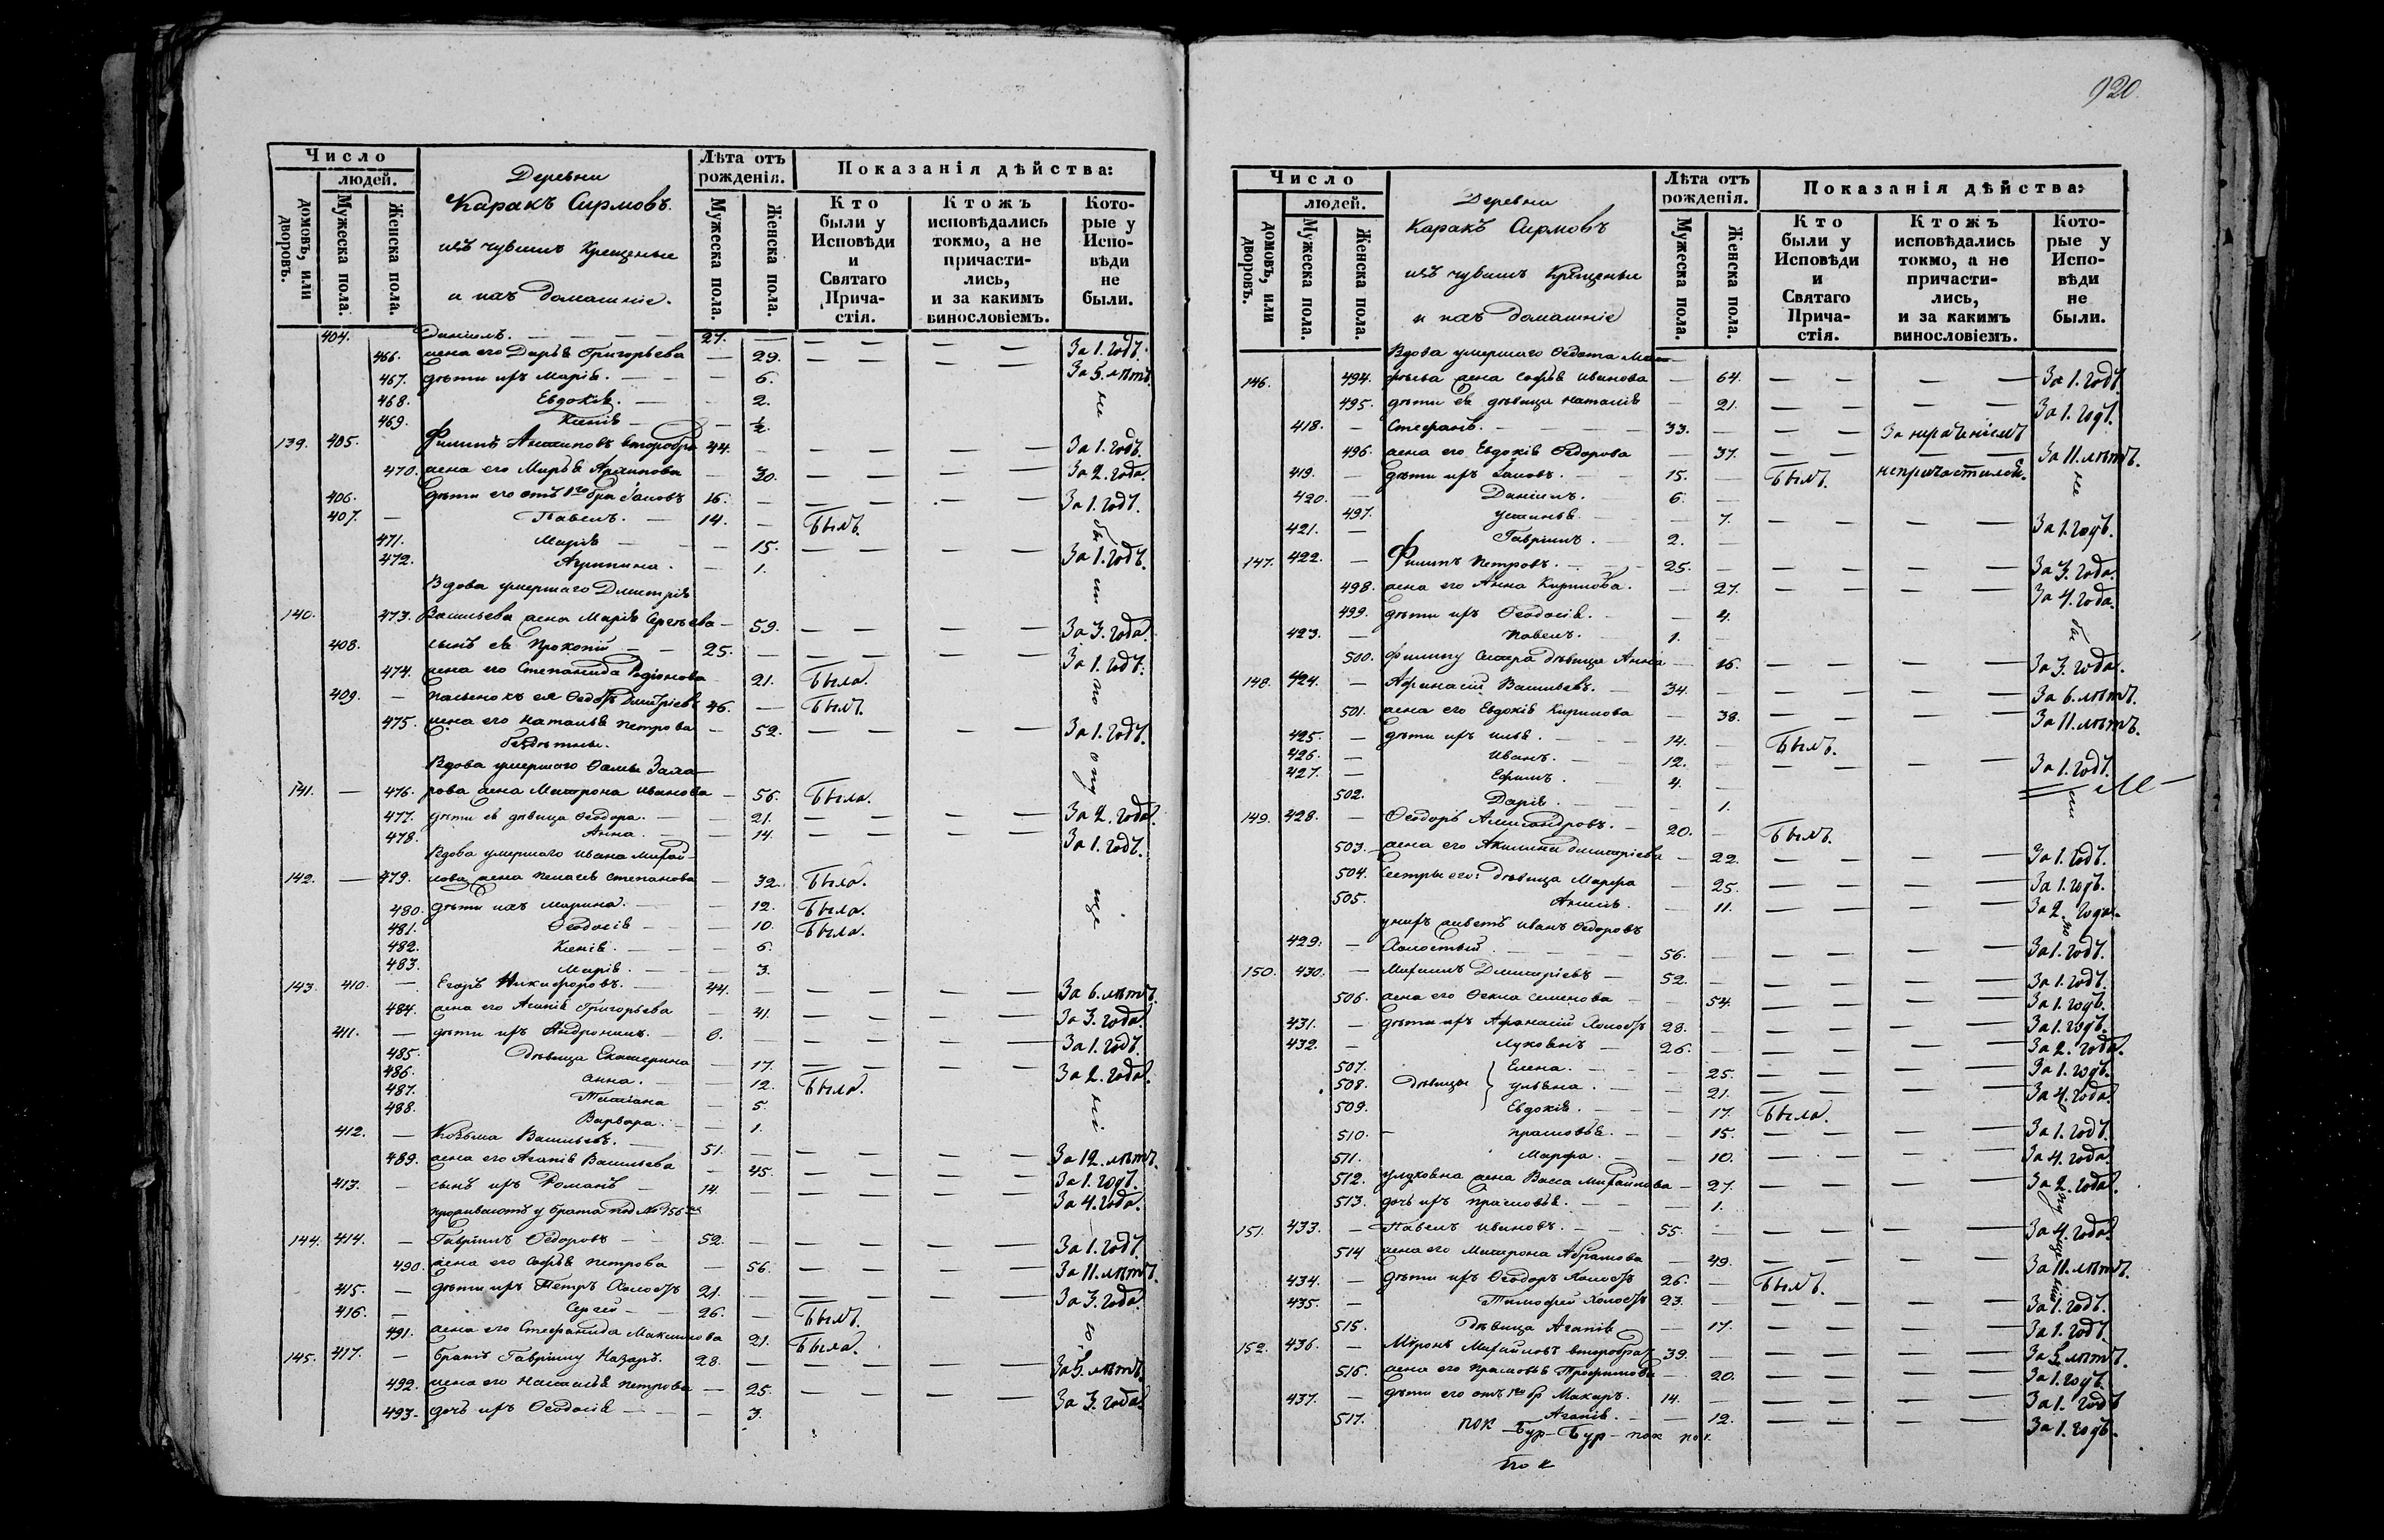 920.
Число
людей.
домовъ, или дворовъ.
Мужеска пола.
Женска пола.
Деревни
Каракъ Сирмовъ
изъ чувашъ крещеные
и ихъ домашніе.
Лѣта отъ рожденія.
Мужеска пола.
Женска пола.
Показанія дѣйства:
Кто были у Исповѣди и Святаго Прича-стія.
Ктожъ исповѣдались токмо, а не причасти-лись, и за какимъ винословіемъ.
Кото-рые у Испо-вѣди не были.
404. Даніилъ. 27. За 1. годъ.
466. жена его Дарья Григорьева 29. За 5. лѣтъ.
467. дѣти ихъ Марія. 6.
468. Евдокія. 2.
469. Ксенія ½.
139. 405. Филиппъ Антиповъ второбра 44. За 1. годъ.
470. жена его Марья Архипова 30. За 2. года.
406. дѣти его отъ 1го бра Іаковъ 16. За 1. годъ.
407. Павелъ. 14. Былъ.
471. Марія 15. За 1. годъ.
472. Агрипина. 1.
Вдова умершаго Димитрія
140. 473. Васильева жена Марія Сергѣева 59. За 3. года.
408. сынъ ея Прокопій 25. За 1. годъ.
474. жена его Степанида Родіонова 21. Была.
409. пасынокъ ея Ѳеодоръ Димитріевъ 46. Былъ.
475. жена его Наталья Петрова 52. За 1. годъ.
бездѣтны.
Вдова умершаго Ѳомы Заха-
141. 476. рова жена Матрона Иванова 56. Была.
477. дѣти ея дѣвица Ѳеодора. 21. За 2. года.
478. Анна. 14. За 1. годъ.
Вдова умершаго Ивана Михай-
142. 479. лова жена Пелагея Степанова 32. Была.
480. дѣти ихъ Марина. 12. Была.
481. Ѳеодосія 10. Была.
482. Ксенія. 6.
483. Марія. 3.
143. 410. Егоръ Никифоровъ. 44. За 6. лѣтъ.
484. жена его Агапія Григорьева 41. За 3. года.
411. дѣти ихъ Андроникъ. За 1. годъ.
485. дѣвица Екатерина 17. За 2. года.
486. Анна. 12. Была.
487. Татіана 5.
488. Варвара. 1.
412. Козьма Васильевъ. 51. За 12. лѣтъ.
489. жена его Агапія Васильева 45. За 1. годъ.
413. сынъ ихъ Романъ 14. За 4. года.
проживаютъ у брата под № 156мъ
144. 414. Гавріилъ Ѳедоровъ 52. За 1. годъ.
490. жена его Софья Петрова 56. За 11. лѣтъ.
415. дѣти ихъ Петръ Холостъ 21. За 3. года.
416. Сергѣй 26. Былъ.
491. жена его Стефанида Максимова 21. Была.
145. 417. братъ Гавріилу Назаръ. 28. За 5. лѣтъ.
492. жена его Наталья Петрова 25. За 3. года.
493. дочь ихъ Ѳеодосія 3.
не бы ли по о ну ще ні ю.
Число
людей.
домовъ, или дворовъ.
Мужеска пола.
Женска пола.
Деревни
Каракъ Сирмовъ
изъ чувашъ крещеные
и ихъ домашніе
Лѣта отъ рожденія.
Мужеска пола.
Женска пола.
Показанія дѣйства:
Кто были у Исповѣди и Святаго Прича-стія.
Ктожъ исповѣдались токмо, а не причасти-лись, и за какимъ винословіемъ.
Кото-рые у Испо-вѣди не были.
Вдова умершаго Ѳедота Мат-
146. 494. фѣева жена Софья Иванова 64. За 1. годъ.
495. дѣти ея дѣвица Наталія 21. За 1. годъ.
418. Стефанъ. 33. За нерачѣніемъ
496. жена его Евдокія Ѳедорова 37. За 11. лѣтъ.
419. дѣти ихъ Іаковъ. 15. Былъ. непричастился.
420. Даніилъ. 6.
497. Устинья. 7. За 1. годъ.
421. Гавріилъ. 2.
147. 422. Филипъ Петровъ. 25. За 3. года.
498. жена его Анна Кирилова. 27. За 4. года.
499. дѣти ихъ Ѳеодосія. 4.
423. Павелъ. 1.
500. Филипу сестра дѣвица Анна 16. За 3. года.
148. 424. Афанасій Васильевъ. 34. За 6. лѣтъ.
501. жена его Евдокія Кирилова 38. За 11. лѣтъ.
425. дѣти ихъ Илья. 14. Былъ.
426. Иванъ. 12. За 1. годъ.
427. Ефимъ. 4.
502. Дарія. 1.
149. 428. Ѳеодоръ Александровъ. 20. Былъ.
503. жена его Акилина Димитріева 22. За 1. годъ.
504. Сестры его: дѣвица Марфа 25. За 1. годъ.
505. Анисія. 11. За 2. года.
у нихъ живетъ Иванъ Ѳедоровъ
429. Холостый 56. За 1. годъ.
150. 430. Михаилъ Димитріевъ 52. За 1. годъ.
506. жена его Ѳекла Семенова 54. За 1. годъ.
431. дѣти ихъ Афанасій Холостъ 28. За 1. годъ.
432. Лукіанъ 26. За 2. года.
507. Елена. 25. За 1. годъ.
508. дѣвицы Ульяна. 21. За 4. года.
509. Евдокія. 17. Была.
510. Прасковья. 15. За 1. годъ.
511. Марфа. 10. За 4. года.
512. у Лукіана жена Васса Михайлова 27. За 2. года.
513. дочь ихъ Прасковья. 1.
151. 433. Павелъ Ивановъ. 55. За 4. года.
514 жена его Матрона Абрамова 49. За 11. лѣтъ.
434. дѣти ихъ Ѳеодоръ Холостъ 26. Былъ.
435. Тимофей Холостъ 23. За 1. годъ.
515. Дѣвица Агапія 17. За 1. годъ.
152. 436. Міронъ Михайловъ второбра 39. За 5. лѣтъ.
516. жена его Прасковья Трофимова 20. За 1. годъ.
437. дѣти его отъ 1го бр Макаръ. 14. За 1. годъ
517. Агапія. 12. За 1. годъ.